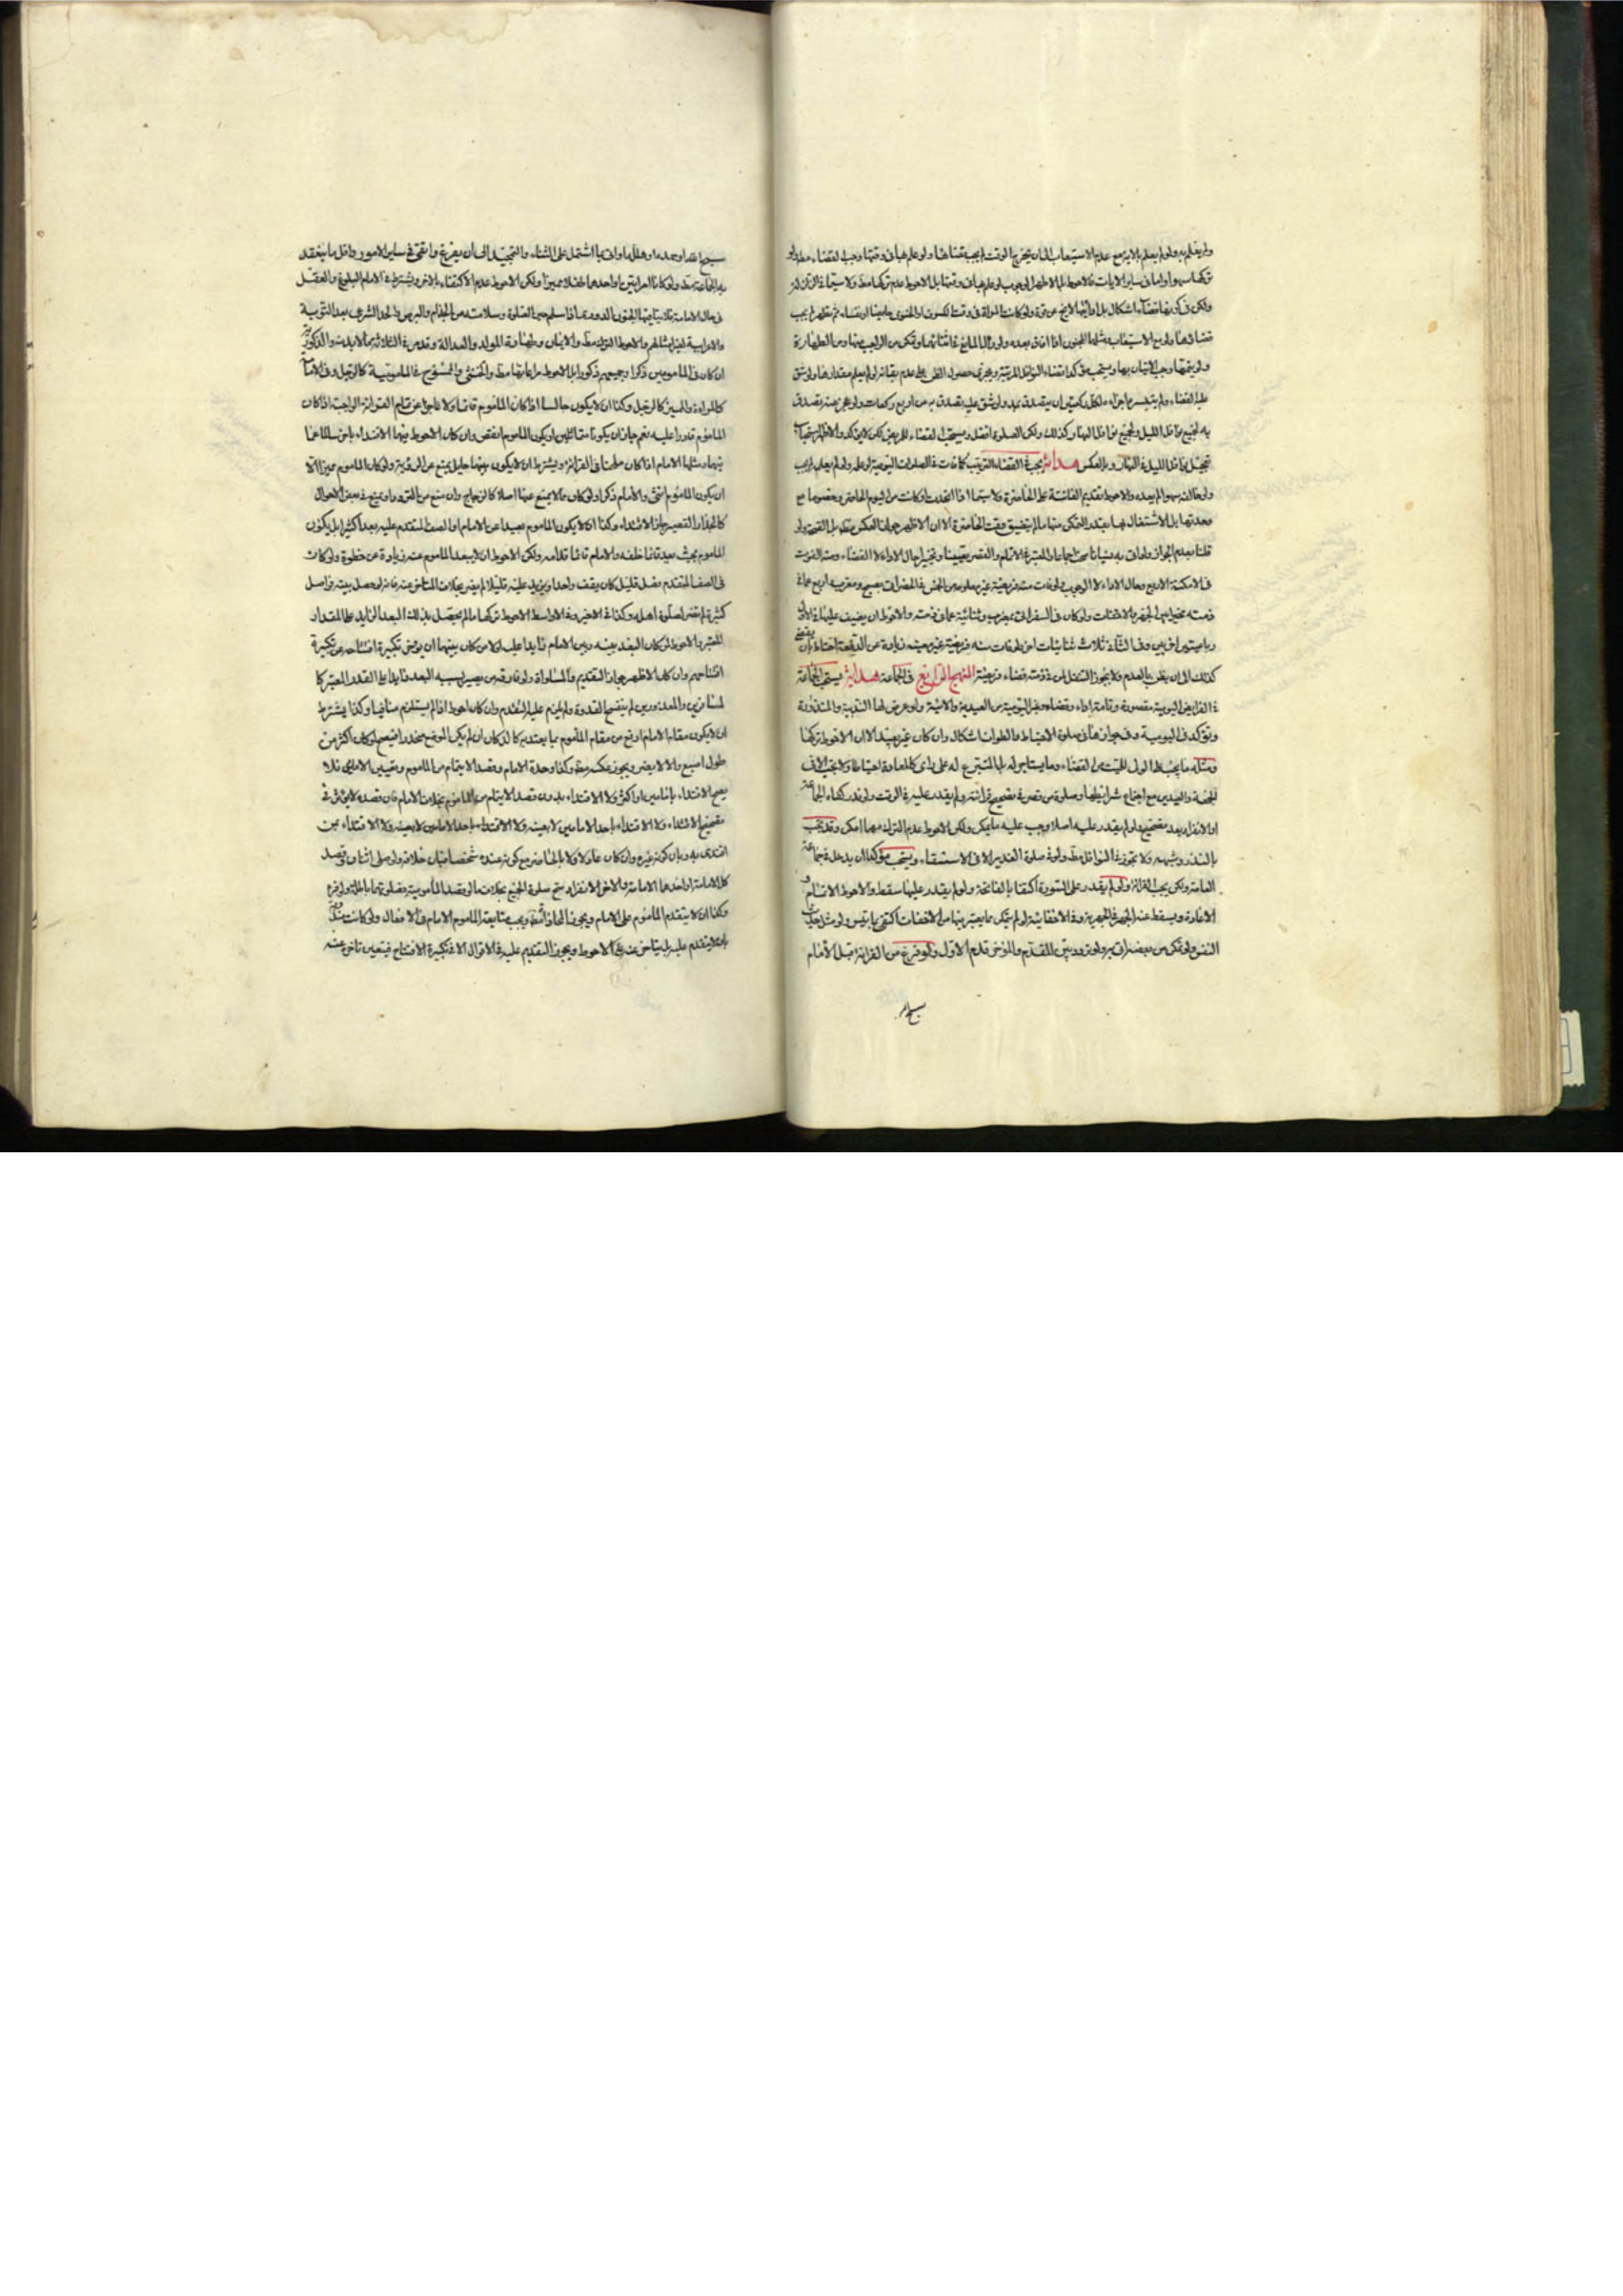 ولم يعلم به ولو لم يعلم بالامر مع عدم الاستيعاب الى ان يخرج الوقت لم يجب قضاؤها ولو علم بها في وقتها وجب القضاء مطلقا ولو
تركها سهوا واما في ساير الايات فالاحوط بل الاظهر الوجوب لو علم بها في وقتها بل الاحوط عدم تركها مط ولا سيما في الزلزلة
ولكن في كونها قضاء اشكال بل اداؤها لا يخ عن قوة ولو كانت المراة في وقت الكسوف او الخسوف حايضا او نفساء ثم تطهر لم يجب
قضاؤها ولو مع الاستيعاب ومثلها المجنون اذا افاق بعده ولو زال المانع في اثنائها وتمكن من الواجب منها ومن الطهارة
ولو بتمامها وجب الاتيان بها ويستحب مؤكدا قضاء النوافل المرتبة ويجزى حصول الظن على عدم بقائه لو لم يعلم مقدارها ولو شق
عليه القضاء ولم يتيسر اجزاء لكل ركعتين ان يتصدق بمد ولو شق عليه تصدق به عن اربع ركعات ولو عجز عنه تصدق
به لجميع نوافل الليل ولجميع نوافل النهار كذلك ولكن الصلوة افضل ويستحب القضاء للمريض لكن لا يؤكد والاظهر استحباب
تعجيل نوافل الليل في النهار وبالعكس هداية يجب في القضاء الترتيب كما فات في الصلوات اليومية لو علمه ولو لم يعلمه لم يجب
ولو خالف سهوا لم يعده والاحوط تقديم الفائتة على الحاضرة ولا سيما اذا اتحدت او كانت من اليوم الحاضر وخصوصا مع
وحدتها بل الاشتغال بها بقدر التمكن منها ما لم يتضيق وقت الحاضرة الا ان الاظهر جواز العكس مط بل الفضل ولو
قلنا بعدم الجواز ولو اتى به نسيانا صح اجماعا والعبرة في الاتمام والقصر تعيينا وتخييرا حال الاداء لا القضاء ومنه الفوت
في الامكنة الاربع وحال الاداء لا الوجوب ولو فات منه فريضة غير معلومة من الخمس في الحضر اتى بصبح ومغرب واربع عما في
ذمته مخيرا بين الجهر والاخفات ولو كان في السفر اتى بمغرب وثنائية عما في ذمته والاحوط ان يضيف عليها في الاول
رباعيتين اخريين وفي الثاني ثلاث ثنائيات اخر ولو فات منه فريضة غير معينة زيادة عن الدفعة احتاط بان يقضي
كذلك الى ان يظن بالعدم ولا يجوز التنفل لمن في ذمته قضاء فريضة المنهج الرابع في الجماعة هداية يستحب الجماعة
في الفرايض اليومية مقصورة وتامة اداء وقضاء وغير اليومية من العيدية والايتية ولو عرض لها الندبية والمنذورة
وتؤكد في اليومية وفي جوازها في صلوة الاحتياط والطواف اشكال وان كان غير بعيد الا ان الاحوط تركها
ومثله ما يجب على الولي للميت من القضاء وما يستاجر له بل المتبرع له على راى كالمعادة احتياطا ولا يجب الا في
الجمعة والعيدين مع اجتماع شرايطها وصلوة من قصر في تصحيح قرائته ولم يقدر عليه في الوقت ولو تدركها الجماعة
او الانفراد بعد تصحيحها ولو لم يقدر عليه اصلا وجب عليه ما يمكن ولكن الاحوط عدم الترك مهما امكن وقد تجب
بالنذر وشبهه ولا تجوز في النوافل مط ولو في صلوة الغدير الا في الاستسقاء ويستحب مؤكدا ان يدخل في جماعة
العامة ولكن يجب القرائة ولو لم يقدر على السورة اكتفا بالفاتحة ولو لم يقدر عليها سقط والاحوط الاتمام و
الاعادة ويسقط عنه الجهر في الجهرية وفي الاخفاتية لو لم يتمكن مما يعتبر فيها من الاخفات اكتفى بما تيسر ولو مثل حديث
النفس ولو تمكن من بعضه اتى به ولو تردد بين المقدم والمؤخر قدم الاول ولو فرغ من القرائة قبل الامام
سبح الله
سبح الله او حمده او هلله او اتى بما اشتمل على الثناء والتمجيد الى ان يفرغ واتقى في ساير الامور واقل ما ينعقد
به الجماعة مط ولو كانا امراتين او احدهما طفلا مميزا ولكن الاحوط عدم الاكتفاء بالاخر ويشترط في الامام البلوغ والعقل
في حال الامامة فلا ينافيها الجنون الدوري اذا سلم حين الصلوة وسلامته من الجذام والبرص والحد الشرعي بعد التوبة
والاعرابية لغير امثالهم والاحوط الترك مط والايمان وطهارة المولد والعدالة وقد مر في الثلاثة ما لا بد منه والذكورية
ان كان في المامومين ذكرا وجميعهم ذكورا بل الاحوط مراعاتها مط والخنثى والممسوح في المامومية كالرجل وفي الامامة
كالمراة والمميز كالرجل وكذا ان لا يكون جالسا اذا كان الماموم قائما ولا عاجزا عن تمام القرائة الواجبة اذا كان
الماموم قادرا عليه نعم جاز ان يكونا متماثلين او يكون الماموم انقص وان كان الاحوط فيهما الاقتداء باخر سالما عنا
فيهما ومثلها الامام اذا كان ملحنا في القرائة ويشترط ان لا يكون بينهما حايل يمنع عن الرؤية ولو كان الماموم مميزا الا
ان يكون الماموم انثى والامام ذكرا ولو كان مما لا يمنع عنها اصلا كالزجاج وان منع من التردد او يمنع في بعض الاحوال
كالجدار القصير جاز الاقتداء وكذا ان لا يكون الماموم بعيدا عن الامام او الصف المتقدم عليه بعدا كثيرا بل يكون
الماموم بحيث يعد قائما خلفه والامام قائما قدامه ولكن الاحوط ان لا يبعد الماموم عنه زيادة عن خطوة ولو كان
في الصف المتقدم فصل قليل كان يقف واحدا ويزيد عليه قليلا لم يضر بخلاف المتاخر عنه فانه لو حصل بينه فواصل
كثيرة لم تضر لصلوة اهله وكذا في الاخير وفي الاواسط الاحوط تركها ما لم يحصل بذلك البعد الزايد على المقدار
المعتبر والاحوط لو كان البعد بينه وبين الامام زايدا عليه لولا من كان بينهما ان يؤخر تكبيرة افتتاحه عن تكبيرة
افتتاحهم وان كان الاظهر جواز التقديم والمساواة ولو فارق من يصير بسببه البعد زايدا على القدر المعتبر كا
لمسافرين والمعذورين لم ينفسخ القدوة ولم يلزم عليه التقدم وان كان احوط اذا لم يستلزم منافيا وكذا يشترط
ان لا يكون مقام الامام ارفع من مقام الماموم بما يعتد به كالدكان ان لم يكن الوضع منحدرا فيصح لو كان اكثر من
طول اصبع والا لا يضر ويجوز عكسه مط وكذا وحدة الامام وقصد الايتمام من الماموم وتعيين الامام فلا
يصح الاقتداء بامامين او اكثر ولا الاقتداء بدون قصد الايتمام من الماموم بخلاف الامام فان قصده لا يؤثر في
تصحيح الاقتداء ولا الاقتداء باحد الامامين لا بعينه ولا الاقتداء باحد الامامين لا بعينه ولا الاقتداء بمن
اقتدى به وبان كونه غيره وان كان عادلا ولا بالحاضر مع كونه عنده شخصا فبان خلافه ولو صلى اثنان وقصد
كل الامامة او احدهما الامامة والاخر الانفراد صح صلوة الجميع بخلاف ما لو قصدا المامومية فصلوتهما باطلة ولو فرغ
وكذا ان لا يتقدم الماموم على الامام ويجوز المحاذاة مط ويجب متابعة الماموم الامام في الافعال ولو كانت مندوبة
بان لا يتقدم عليه بل يتاخر عنه على الاحوط ويجوز التقديم عليه في الاقوال الا في تكبيرة الافتتاح فيتعين تاخره عنه